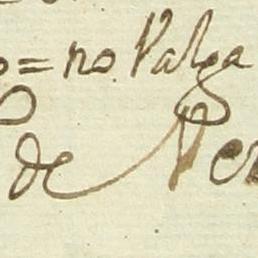 o=no Valga
de Ver